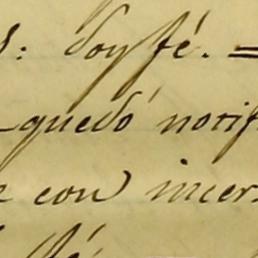 s: doy fé. =
quedó notif
e con incer
fé